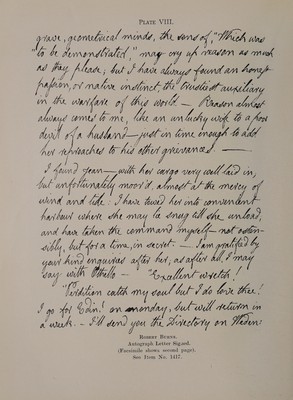 PLATE VIII.
grave, geometrical minds, the sons of, "Which was
"to be demonstrated," may cry up reason as much
as they please; but I have always found an honest
passion, or native instinct the trustiest auxiliary
in the warfare of this world. — Reason almost
always comes to me, like an unlucky wife to a poor
devil of a husband — just in time enough to add
her reproaches to his other grievances. —
I found Jean — with her cargo very well laid in,
but unfortunately moor'd, almost at the mercy of
wind and tide: I have towed her into convenient
harbour where she may lie snug till she unload,
and have taken the command myself — not osten-
sibly, but for a time, in secret. — I am gratified by
your kind enquiries after her; as after all, I may
say with Othello — "Excellent wretch!
"Perdition catch my soul but I do love thee!
I go for Edinr. on monday, but will return in
a week. — I'll send you the Directory on Weden:
ROBERT BURNS.
Autograph Letter Signed.
(Facsimile shows second page).
See Item No. 1417.